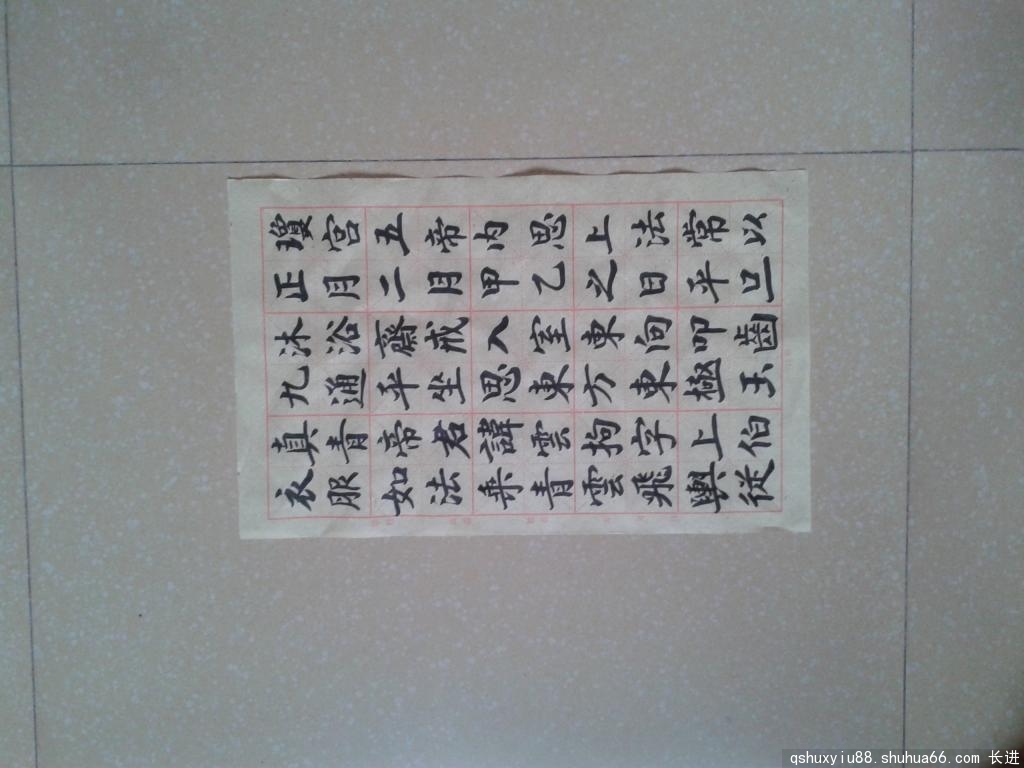 瓊宮五帝内思上法常以
正月二月甲乙之日平旦
沐浴齋戒入室東向叩齒
九通平坐思東方東極玉
真青帝君諱雲拘字上伯
衣服如法乗青雲飛輿從
qshuxyiu88.shuhua66.com 长进